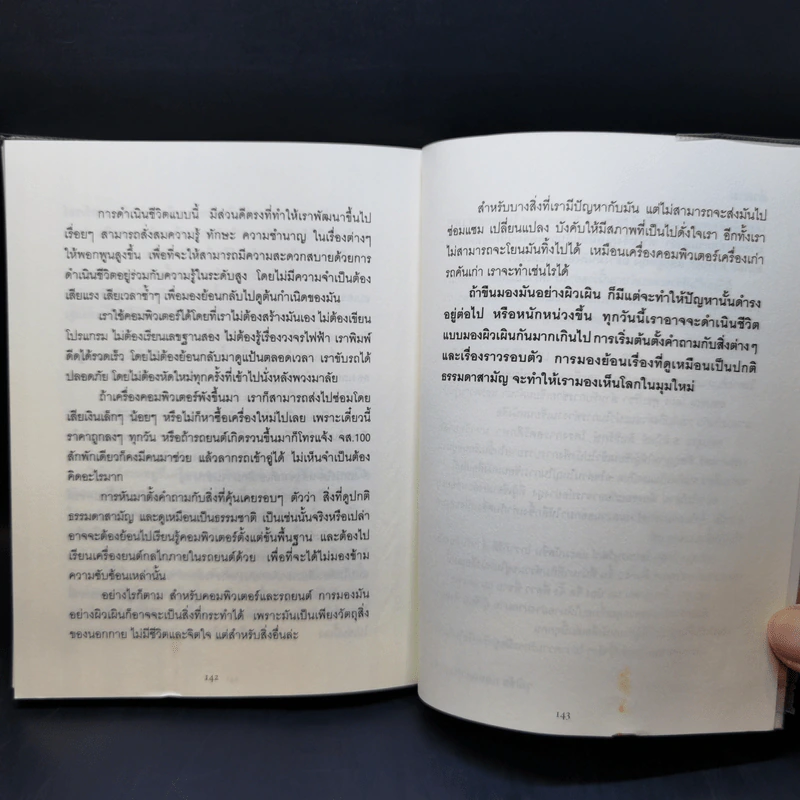 การดำเนินชีวิตแบบนี้ มีส่วนดีตรงที่ทำให้เราพัฒนาขึ้นไป
เรื่อยๆ สามารถสั่งสมความรู้ ทักษะ ความชำนาญ ในเรื่องต่างๆ
ให้พอกพูนสูงขึ้น เพื่อที่จะให้สามารถมีความสะดวกสบายด้วยการ
ดำเนินชีวิตอยู่ร่วมกับความรู้ในระดับสูง โดยไม่มีความจำเป็นต้อง
เสียแรง เสียเวลาซ้ำๆ เพื่อมองย้อนกลับไปดูต้นกำเนิดของมัน
เราใช้คอมพิวเตอร์ได้โดยที่เราไม่ต้องสร้างมันเอง ไม่ต้องเขียน
โปรแกรม ไม่ต้องเรียนเลขฐานสอง ไม่ต้องรู้เรื่องวงจรไฟฟ้า เราพิมพ์
ดีดได้รวดเร็ว โดยไม่ต้องย้อนกลับมาดูแป้นตลอดเวลา เราขับรถได้
ปลอดภัย โดยไม่ต้องหัดใหม่ทุกครั้งที่เข้าไปนั่งหลังพวงมาลัย
ถ้าเครื่องคอมพิวเตอร์พังขึ้นมา เราก็สามารถส่งไปซ่อมโดย
เสียเงินเล็กๆ น้อยๆ หรือไม่ก็หาซื้อเครื่องใหม่ไปเลย เพราะเดี๋ยวนี้
ราคาถูกลงๆ ทุกวัน หรือถ้ารถยนต์เกิดรวนขึ้นมาก็โทรแจ้ง จส.100
สักพักเดียวก็คงมีคนมาช่วย แล้วลากรถเข้าอู่ได้ ไม่เห็นจำเป็นต้อง
คิดอะไรมาก
การหันมาตั้งคำถามกับสิ่งที่คุ้นเคยรอบๆ ตัวว่า สิ่งที่ดูปกติ
ธรรมดาสามัญ และดูเหมือนเป็นธรรมชาติ เป็นเช่นนั้นจริงหรือเปล่า
อาจจะต้องย้อนไปเรียนรู้คอมพิวเตอร์ตั้งแต่ขั้นพื้นฐาน และต้องไป
เรียนเครื่องยนต์กลไกภายในรถยนต์ด้วย เพื่อที่จะได้ไม่มองข้าม
ความซับซ้อนเหล่านั้น
อย่างไรก็ตาม สำหรับคอมพิวเตอร์และรถยนต์ การมองมัน
อย่างผิวเผินก็อาจจะเป็นสิ่งที่กระทำได้ เพราะมันเป็นเพียงวัตถุสิ่ง
ของนอกกาย ไม่มีชีวิตและจิตใจ แต่สำหรับสิ่งอื่นล่ะ
142
สำหรับบางสิ่งที่เรามีปัญหากับมัน แต่ไม่สามารถจะส่งมันไป
ซ่อมแซม เปลี่ยนแปลง บังคับให้มีสภาพที่เป็นไปดั่งใจเรา อีกทั้งเรา
ไม่สามารถจะโยนมันทิ้งไปได้ เหมือนเครื่องคอมพิวเตอร์เครื่องเก่า
รถคันเก่า เราจะทำเช่นไรได้
ถ้าขืนมองมันอย่างผิวเผิน ก็มีแต่จะทำให้ปัญหานั้นดำรง
อยู่ต่อไป หรือหนักหน่วงขึ้น ทุกวันนี้เราอาจจะดำเนินชีวิต
แบบมองผิวเผินกันมากเกินไป การเริ่มต้นตั้งคำถามกับสิ่งต่างๆ
และเรื่องราวรอบตัว การมองย้อนเรื่องที่ดูเหมือนเป็นปกติ
ธรรมดาสามัญ จะทำให้เรามองเห็นโลกในมุมใหม่
143